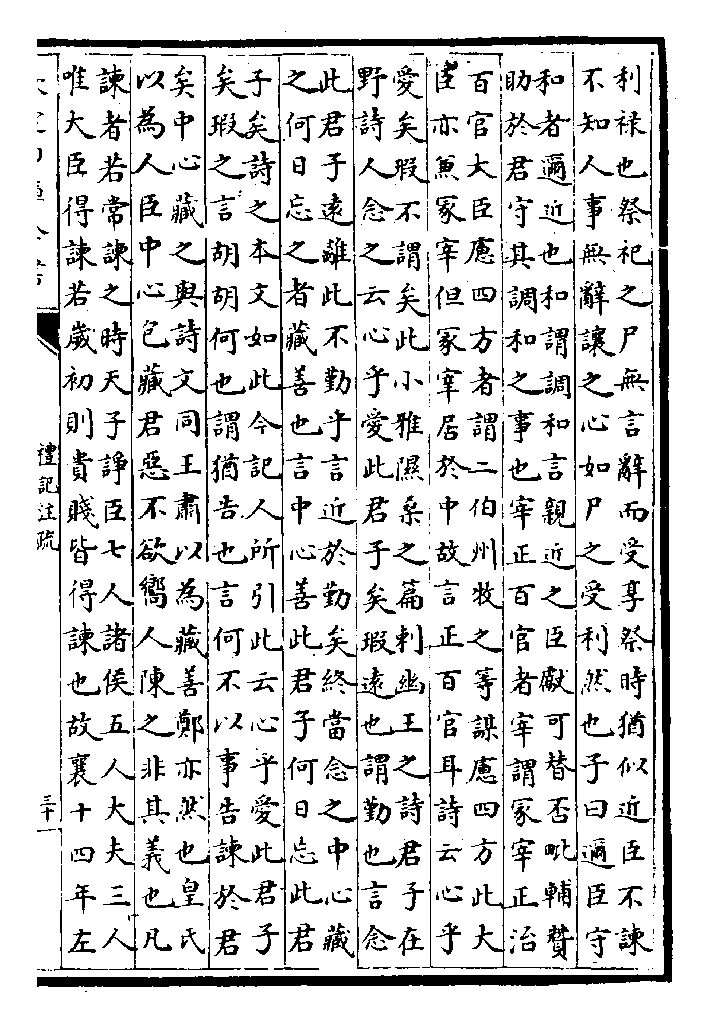 利祿也祭祀之尸無言辭而受享祭時猶似近臣不諫
不知人事無辭讓之心如尸之受利然也子曰邇臣守
和者邇近也和謂調和言親近之臣獻可替否毗輔贊
助於君守其調和之事也宰正百官者宰謂冢宰正治
百官大臣慮四方者謂二伯州牧之等謀慮四方此大
臣亦兼冢宰但冢宰居於中故言正百官耳詩云心乎
愛矣瑕不謂矣此小雅隰桑之篇刺幽王之詩君子在
野詩人念之云心乎愛此君子矣瑕遠也謂勤也言念
此君子遠離此不勤乎言近於勤矣終當念之中心藏
之何日忘之者藏善也言中心善此君子何日忘此君
子矣詩之本文如此今記人所引此云心乎愛此君子
矣瑕之言胡胡何也謂猶告也言何不以事告諫於君
矣中心藏之與詩文同王肅以為藏善鄭亦然也皇氏
以為人臣中心包藏君惡不欲嚮人陳之非其義也凡
諫者若常諫之時天子諍臣七人諸侯五人大夫三人
唯大臣得諫若歲初則貴賤皆得諫也故襄十四年左
禮記注疏
三十